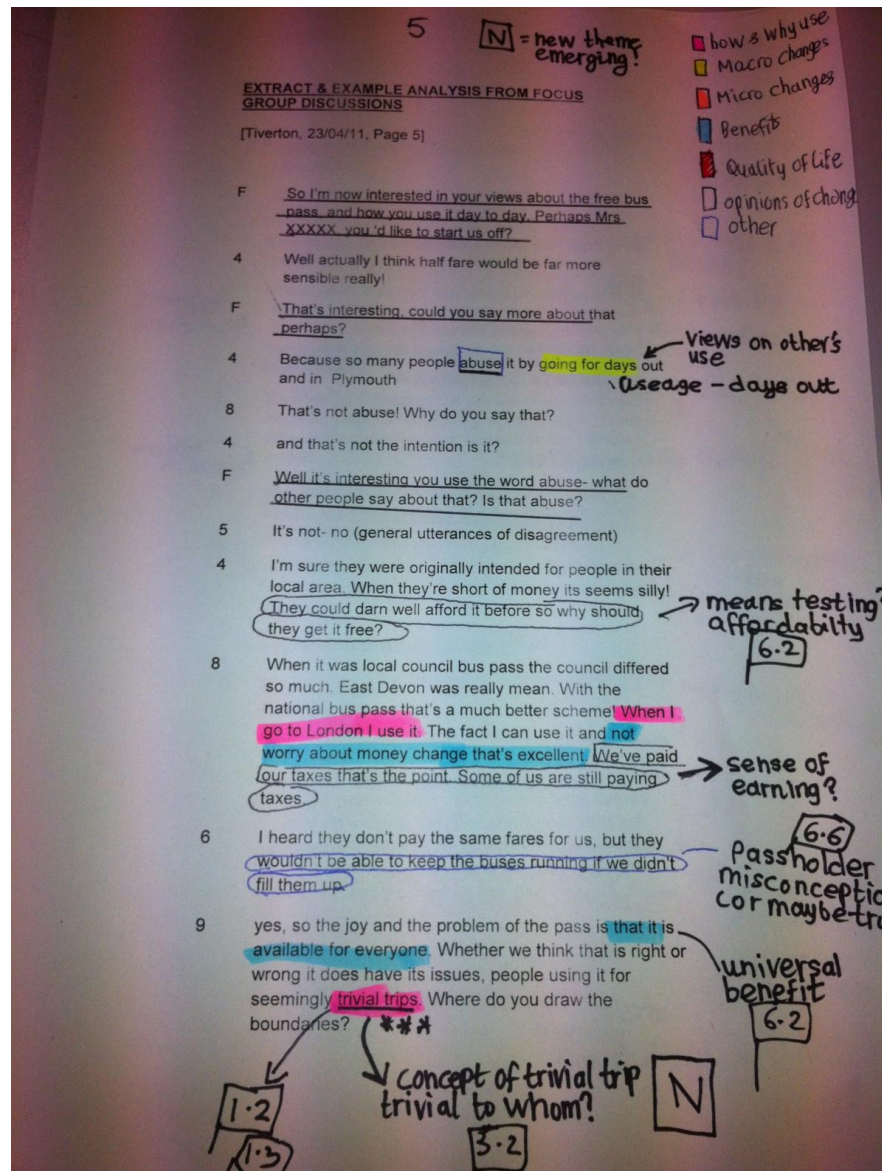 5
N = new theme
emerging!
how & why use
Macro changes
Micro changes
Benefit
Quality of Life
opinions of chang
other
EXTRACT & EXAMPLE ANALYSIS FROM FOCUS
GROUP DISCUSSIONS
[Tiverton, 23/04/11, Page 5]
F So I'm now interested in your views about the free bus
pass, and how you use it day to day. Perhaps Mrs
XXXXX you 'd like to start us off?
4 Well actually I think half fare would be far more
sensible really!
F That's interesting, could you say more about that
perhaps?
4 Because so many people abuse it by going for days out
and in Plymouth
views on other's
use
useage - days out
8 That's not abuse! Why do you say that?
4 and that's not the intention is it?
F Well it's interesting you use the word abuse- what do
other people say about that? Is that abuse?
5 It's not- no (general utterances of disagreement)
4 I'm sure they were originally intended for people in their
local area. When they're short of money its seems silly!
They could darn well afford it before so why should
they get it free?
means testing?
affordabilty
6.2
8 When it was local council bus pass the council differed
so much. East Devon was really mean. With the
national bus pass that's a much better scheme! When I
go to London I use it. The fact I can use it and not
worry about money change that's excellent. We've paid
our taxes that's the point. Some of us are still paying
taxes.
sense of
earning?
6.6
6 I heard they don't pay the same fares for us, but they
wouldn't be able to keep the buses running if we didn't
fill them up.
Passholder
misconceptio
(or maybe tru
9 yes, so the joy and the problem of the pass is that it is
available for everyone. Whether we think that is right or
wrong it does have its issues, people using it for
seemingly trivial trips. Where do you draw the
boundaries? ***
universal
benefit
6.2
1.2
1.3
concept of trivial trip
trivial to whom?
3.2
N